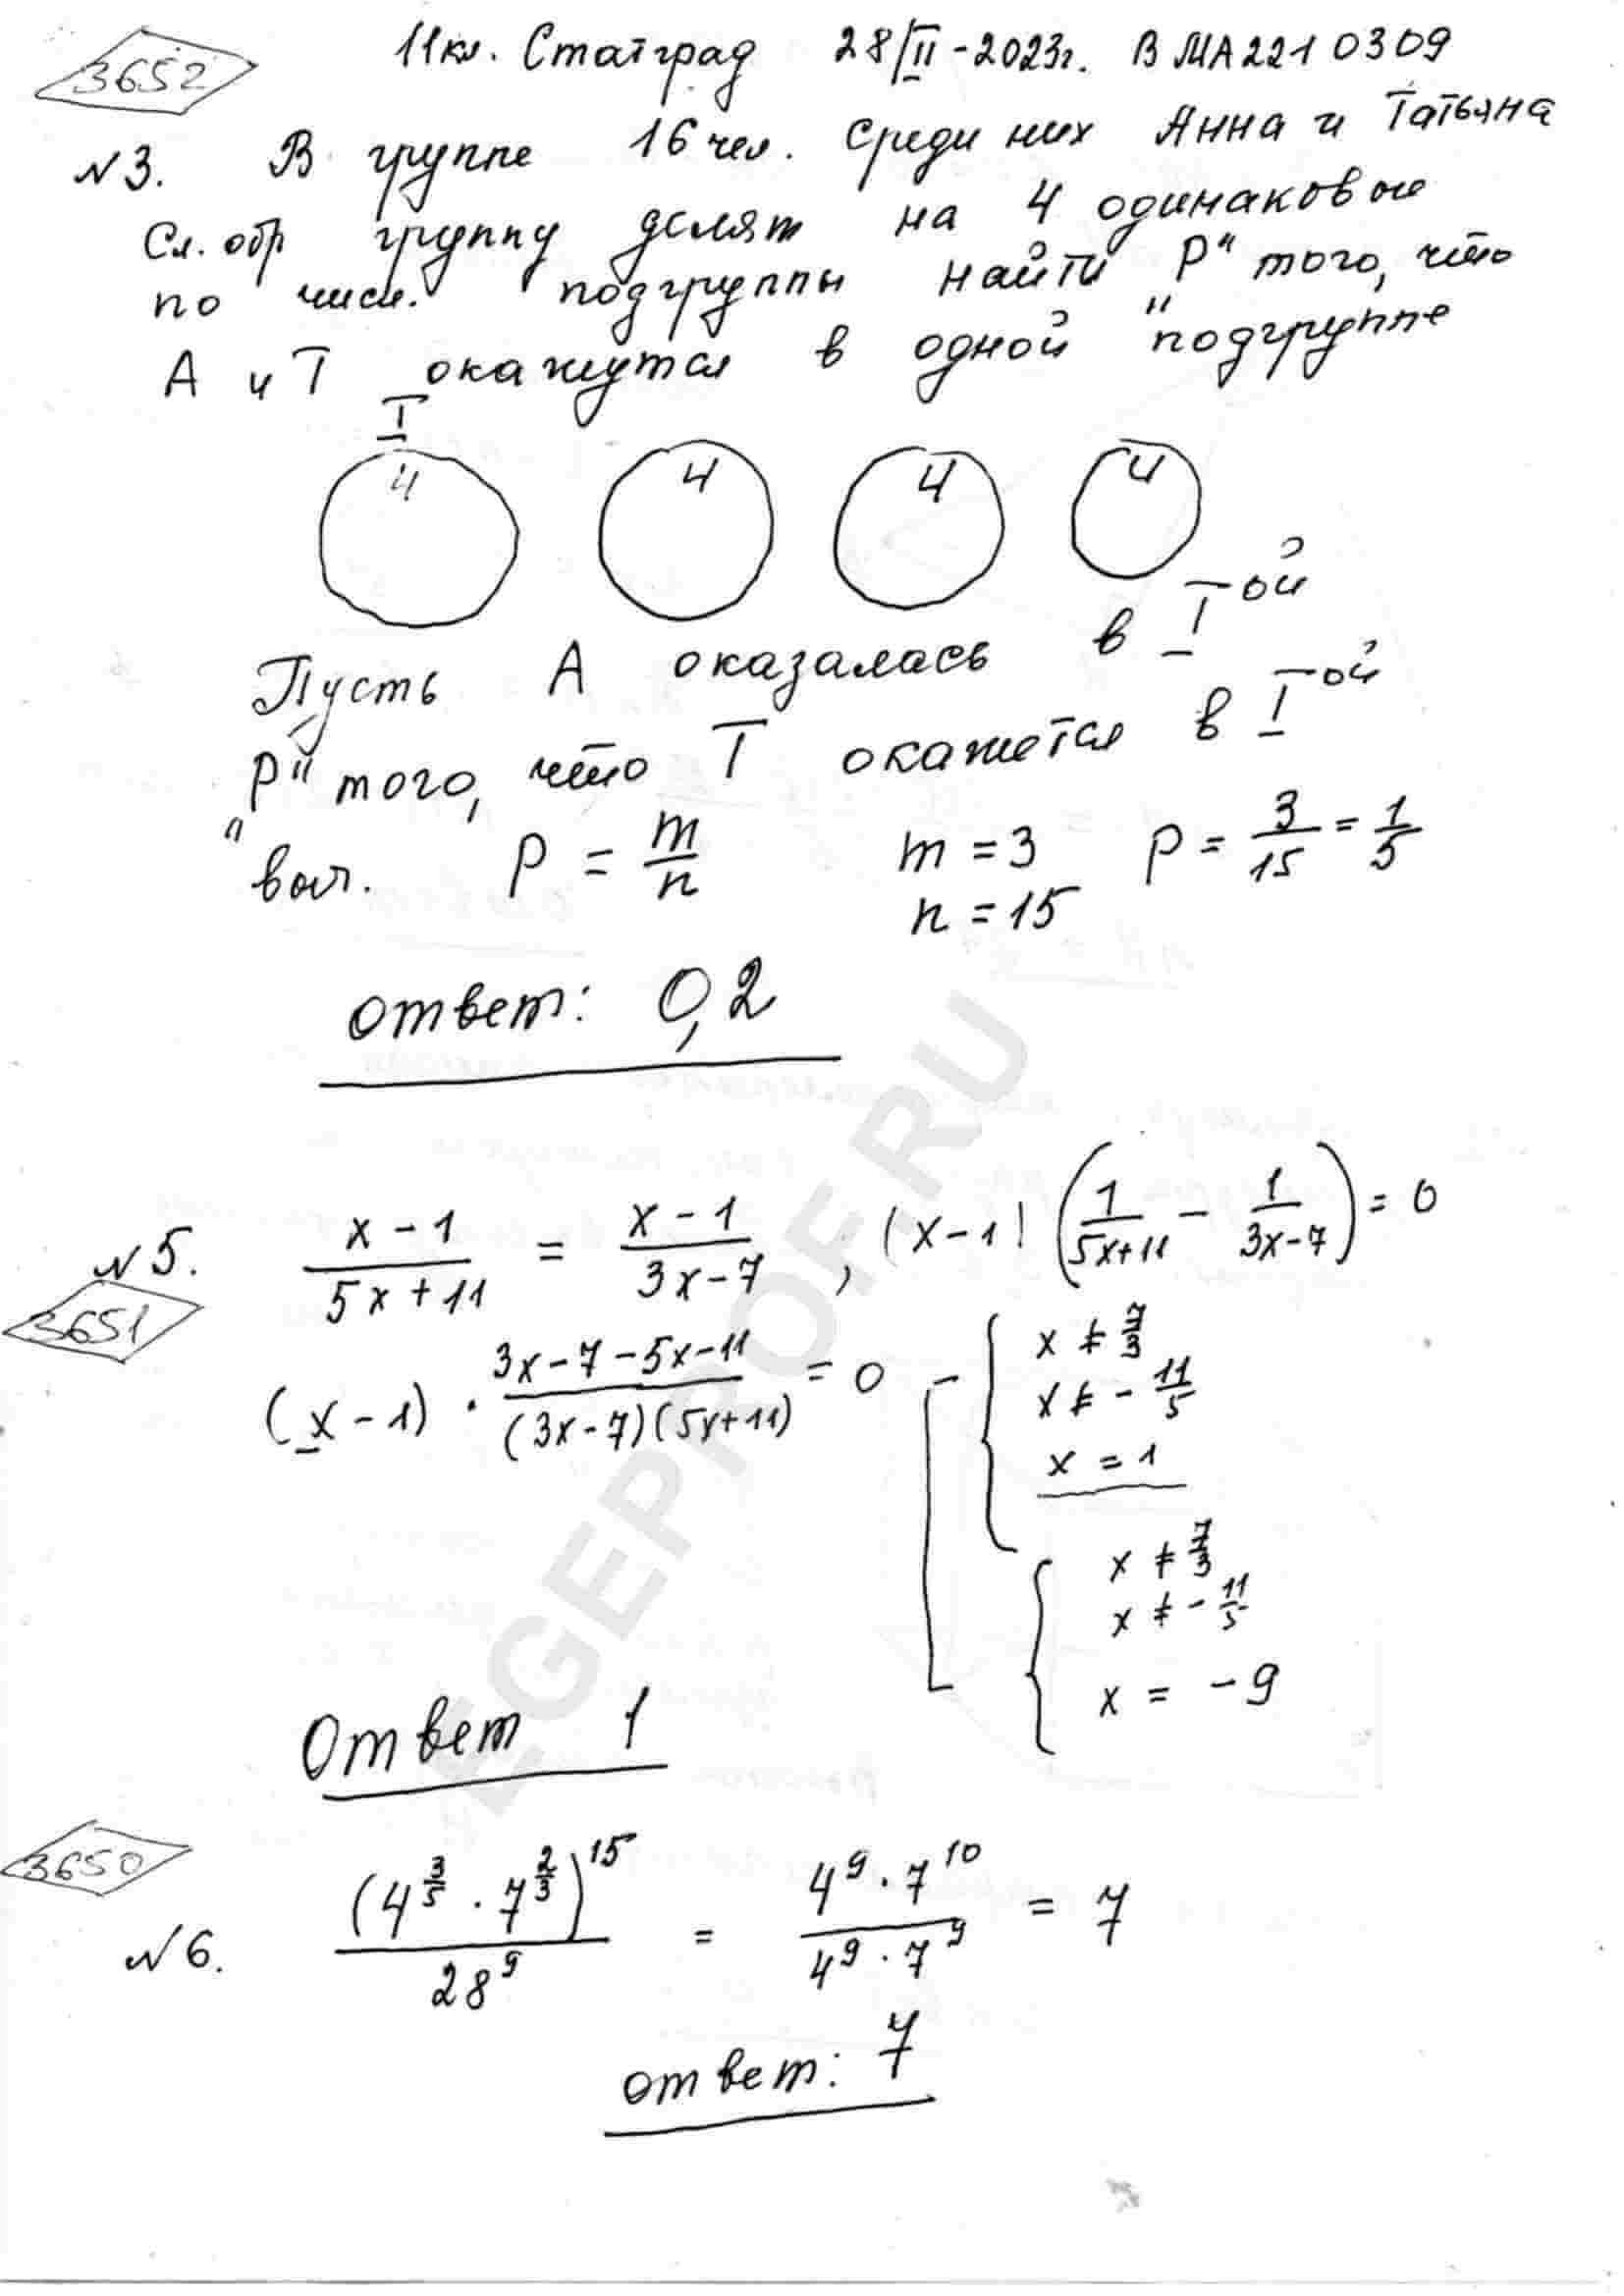 3652
11кл. Статград 28/II-2023г. ВМА2210309
№3. В группе 16 чел. Среди них Анна и Татьяна
Сл. обр группу делят на 4 одинаковые
по числ. подгруппы найти "P" того, что
А и Т окажутся в одной подгруппе
I
4 4 4 4
Пусть А оказалась в I-ой
"P" того, что Т окажется в I-ой
выч. P = m/n m = 3 P = 3/15 = 1/5
n = 15
ответ: 0,2
№5. (x-1)/(5x+11) = (x-1)/(3x-7), (x-1)(1/(5x+11) - 1/(3x-7)) = 0
3651
(x-1) · (3x-7-5x-11)/((3x-7)(5x+11)) = 0
x ≠ 7/3
x ≠ -11/5
x = 1
x ≠ 7/3
x ≠ -11/5
x = -9
Ответ 1
3650
№6. (4^(3/5) · 7^(2/3))^15/28^9 = (4^9 · 7^10)/(4^9 · 7^9) = 7
ответ: 7
EGEPROF.RU